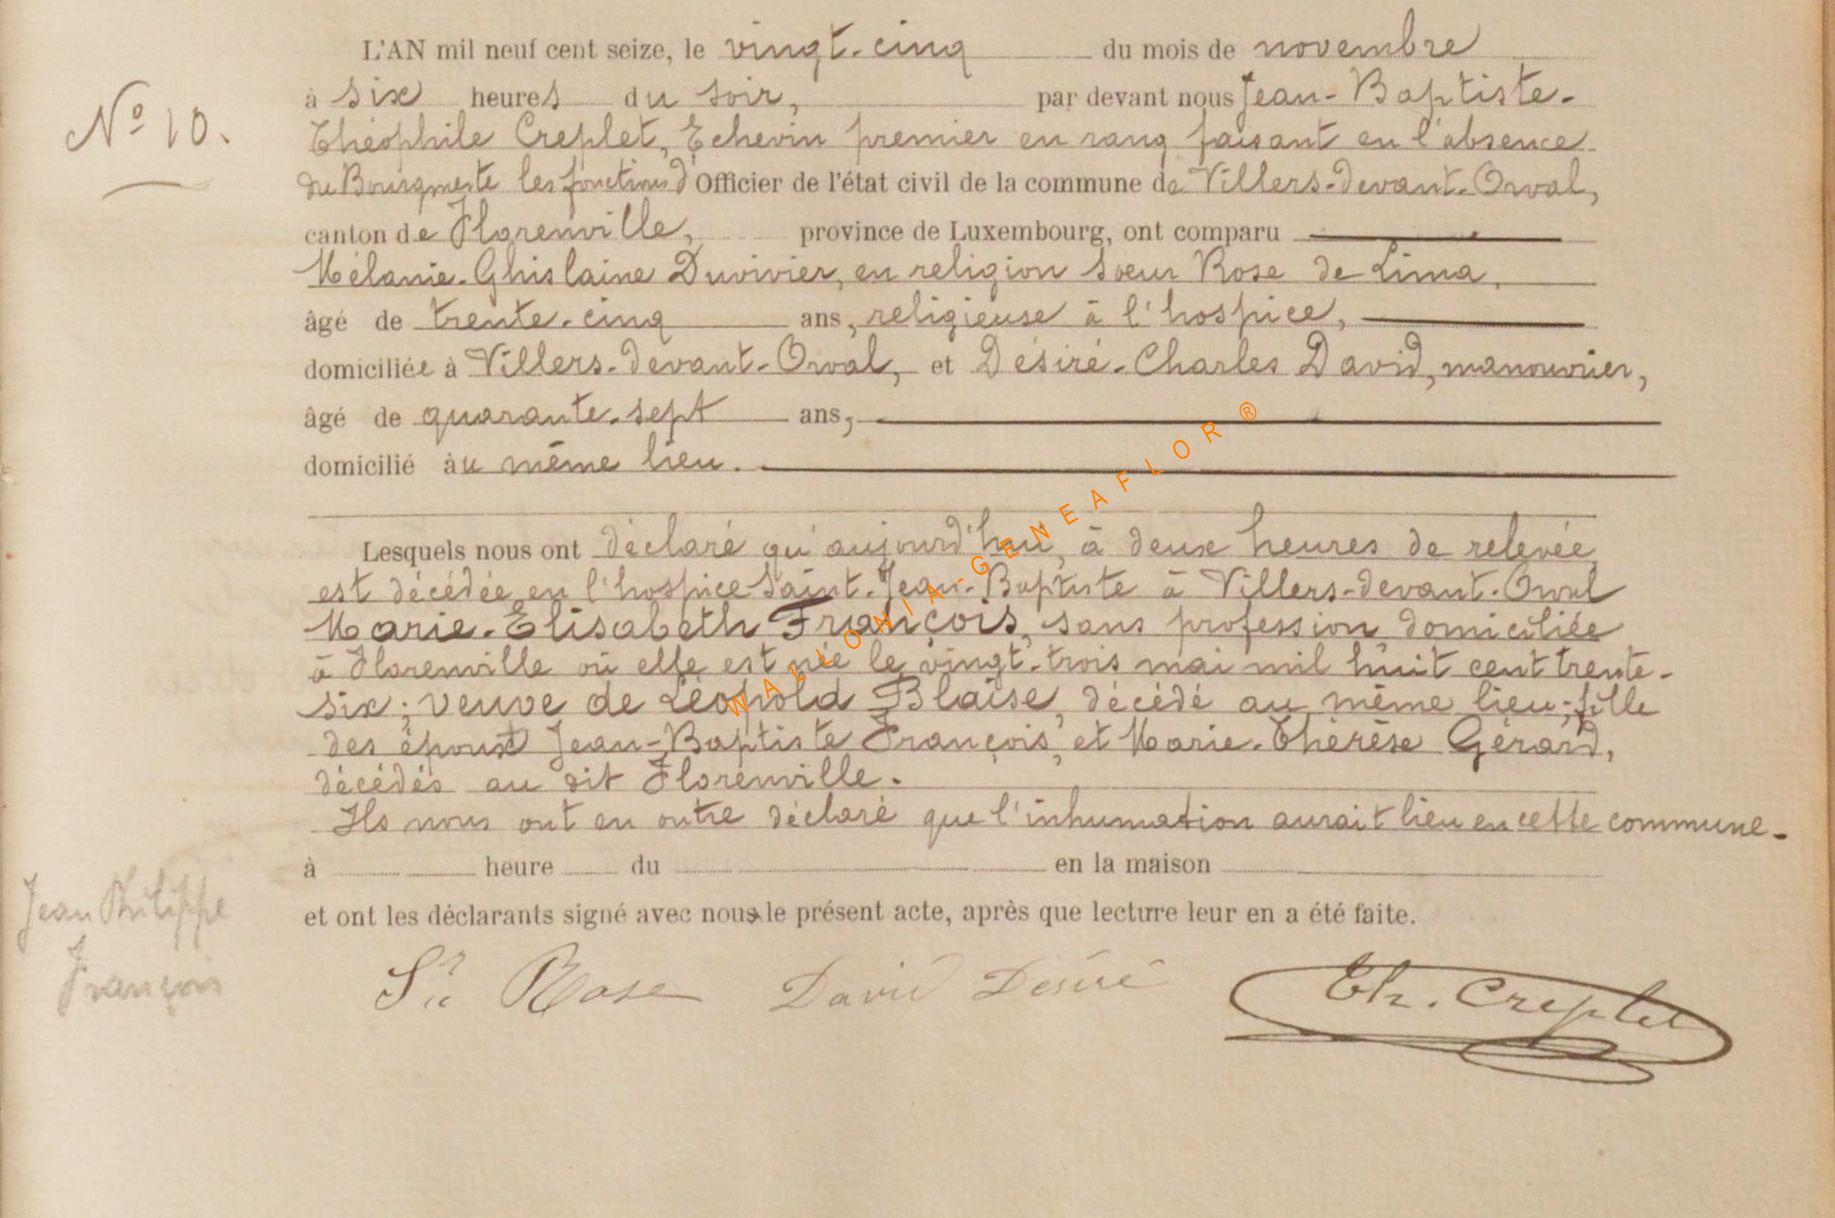 L'AN mil neuf cent seize, le vingt-cinq du mois de novembre
à six heures du soir, par devant nous Jean-Baptiste-
Nº 10.
Théophile Creplet, Echevin premier en rang faisant en l'absence
du Bourgmestre les fonctions d'Officier de l'état civil de la commune de Villers-devant-Orval,
canton de Florenville, province de Luxembourg, ont comparu
Mélanie-Ghislaine Duvivier, en religion soeur Rose de Lima,
âgé de trente-cinq ans, religieuse à l'hospice,
domiciliée à Villers-devant-Orval, et Désiré-Charles David, manouvrier,
âgé de quarante-sept ans,
domicilié au même lieu.
Lesquels nous ont déclaré qu'aujourd'hui, à deux heures de relevée
est décédée en l'hospice Saint-Jean-Baptiste à Villers-devant-Orval
Marie-Elisabeth François, sans profession, domiciliée
à Florenville où elle est née le vingt-trois mai mil huit cent trente-
six; veuve de Léopold Blaise, décédé au même lieu; fille
des époux Jean-Baptiste François, et Marie-Thérèse Gérard,
décédés au dit Florenville.
Ils nous ont en outre déclaré que l'inhumation aurait lieu en cette commune.
à heure du en la maison
et ont les déclarants signé avec nous le présent acte, après que lecture leur en a été faite.
Jean Philippe
François
Sr Rose David Désiré Th. Creplet
WALLONIA-GENEAFLOR®